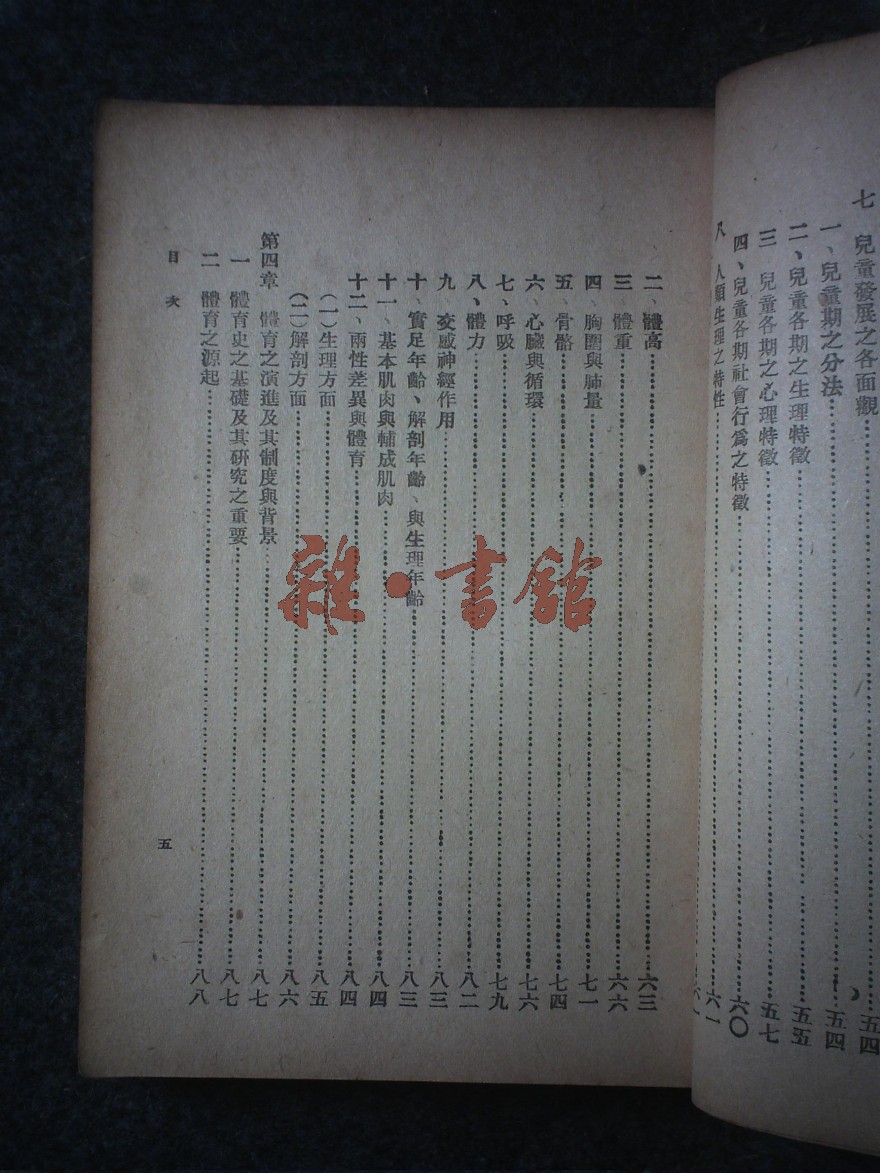 七　兒童發展之各面觀……五四
一、兒童期之分法……五四
二、兒童各期之生理特徵……五五
三　兒童各期之心理特徵……五七
四、兒童各期社會行爲之特徵……六〇
八　人類生理之特性……六一
二、體高……六三
三　體重……六六
四、胸圍與肺量……七一
五、骨骼……七四
六、心臟與循環……七六
七、呼吸……七九
八、體力……八二
九　交感神經作用……八三
十、實足年齡、解剖年齡、與生理年齡……八三
十一、基本肌肉與輔成肌肉……八四
十二、兩性差異與體育……八四
（一）生理方面……八五
（二）解剖方面……八六
第四章　體育之演進及其制度與背景……八七
一　體育史之基礎及其研究之重要……八七
二　體育之源起……八八
目次
五
雜·書館